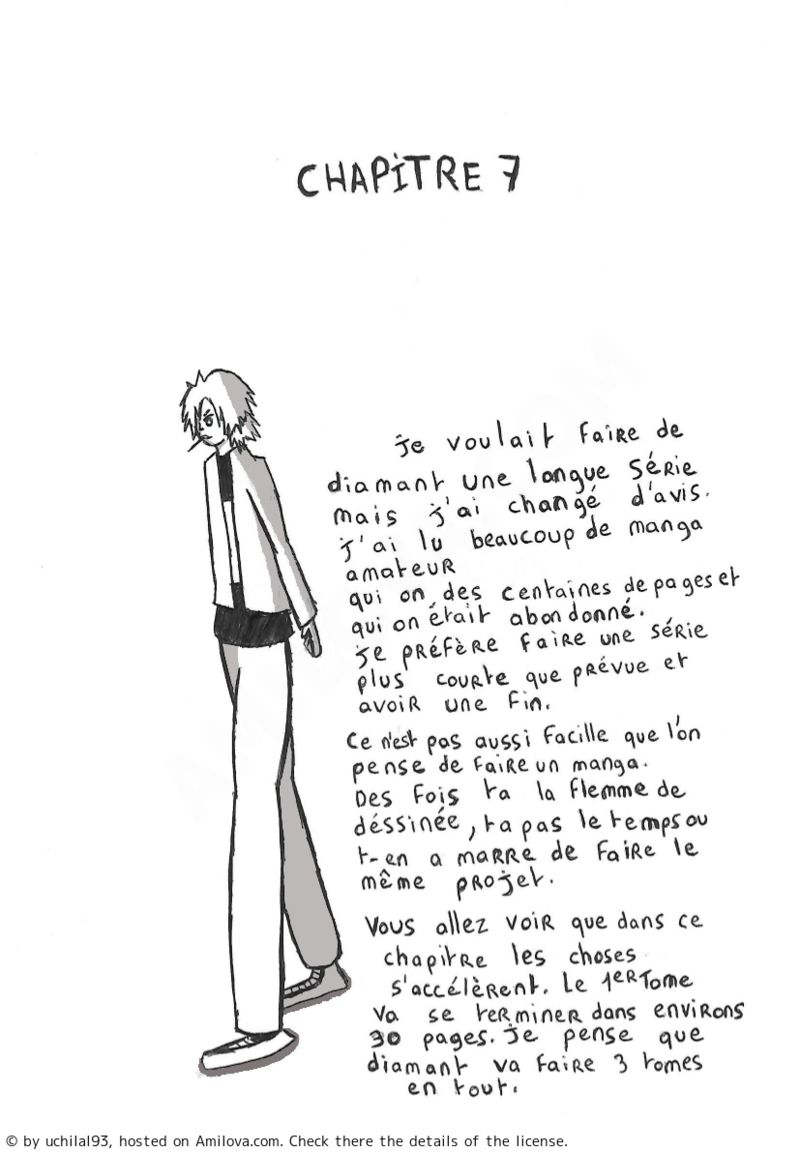 CHAPiTRE 7
je voulait faire de
diamant une longue série
mais j'ai changé d'avis.
j'ai lu beaucoup de manga
amateur
qui on des centaines de pages et
qui on était abondonné.
je préfère faire une série
plus courte que prévue et
avoir une fin.
Ce n'est pas aussi facille que l'on
pense de faire un manga.
Des fois ta la flemme de
déssinée, ta pas le temps ou
t-en a marre de faire le
même projet.
Vous allez voir que dans ce
chapitre les choses
s'accélèrent. Le 1er Tome
va se terminer dans environs
30 pages. je pense que
diamant va faire 3 tomes
en tout.
AMILOVA.COM
© by uchilal93, hosted on Amilova.com. Check there the details of the license.